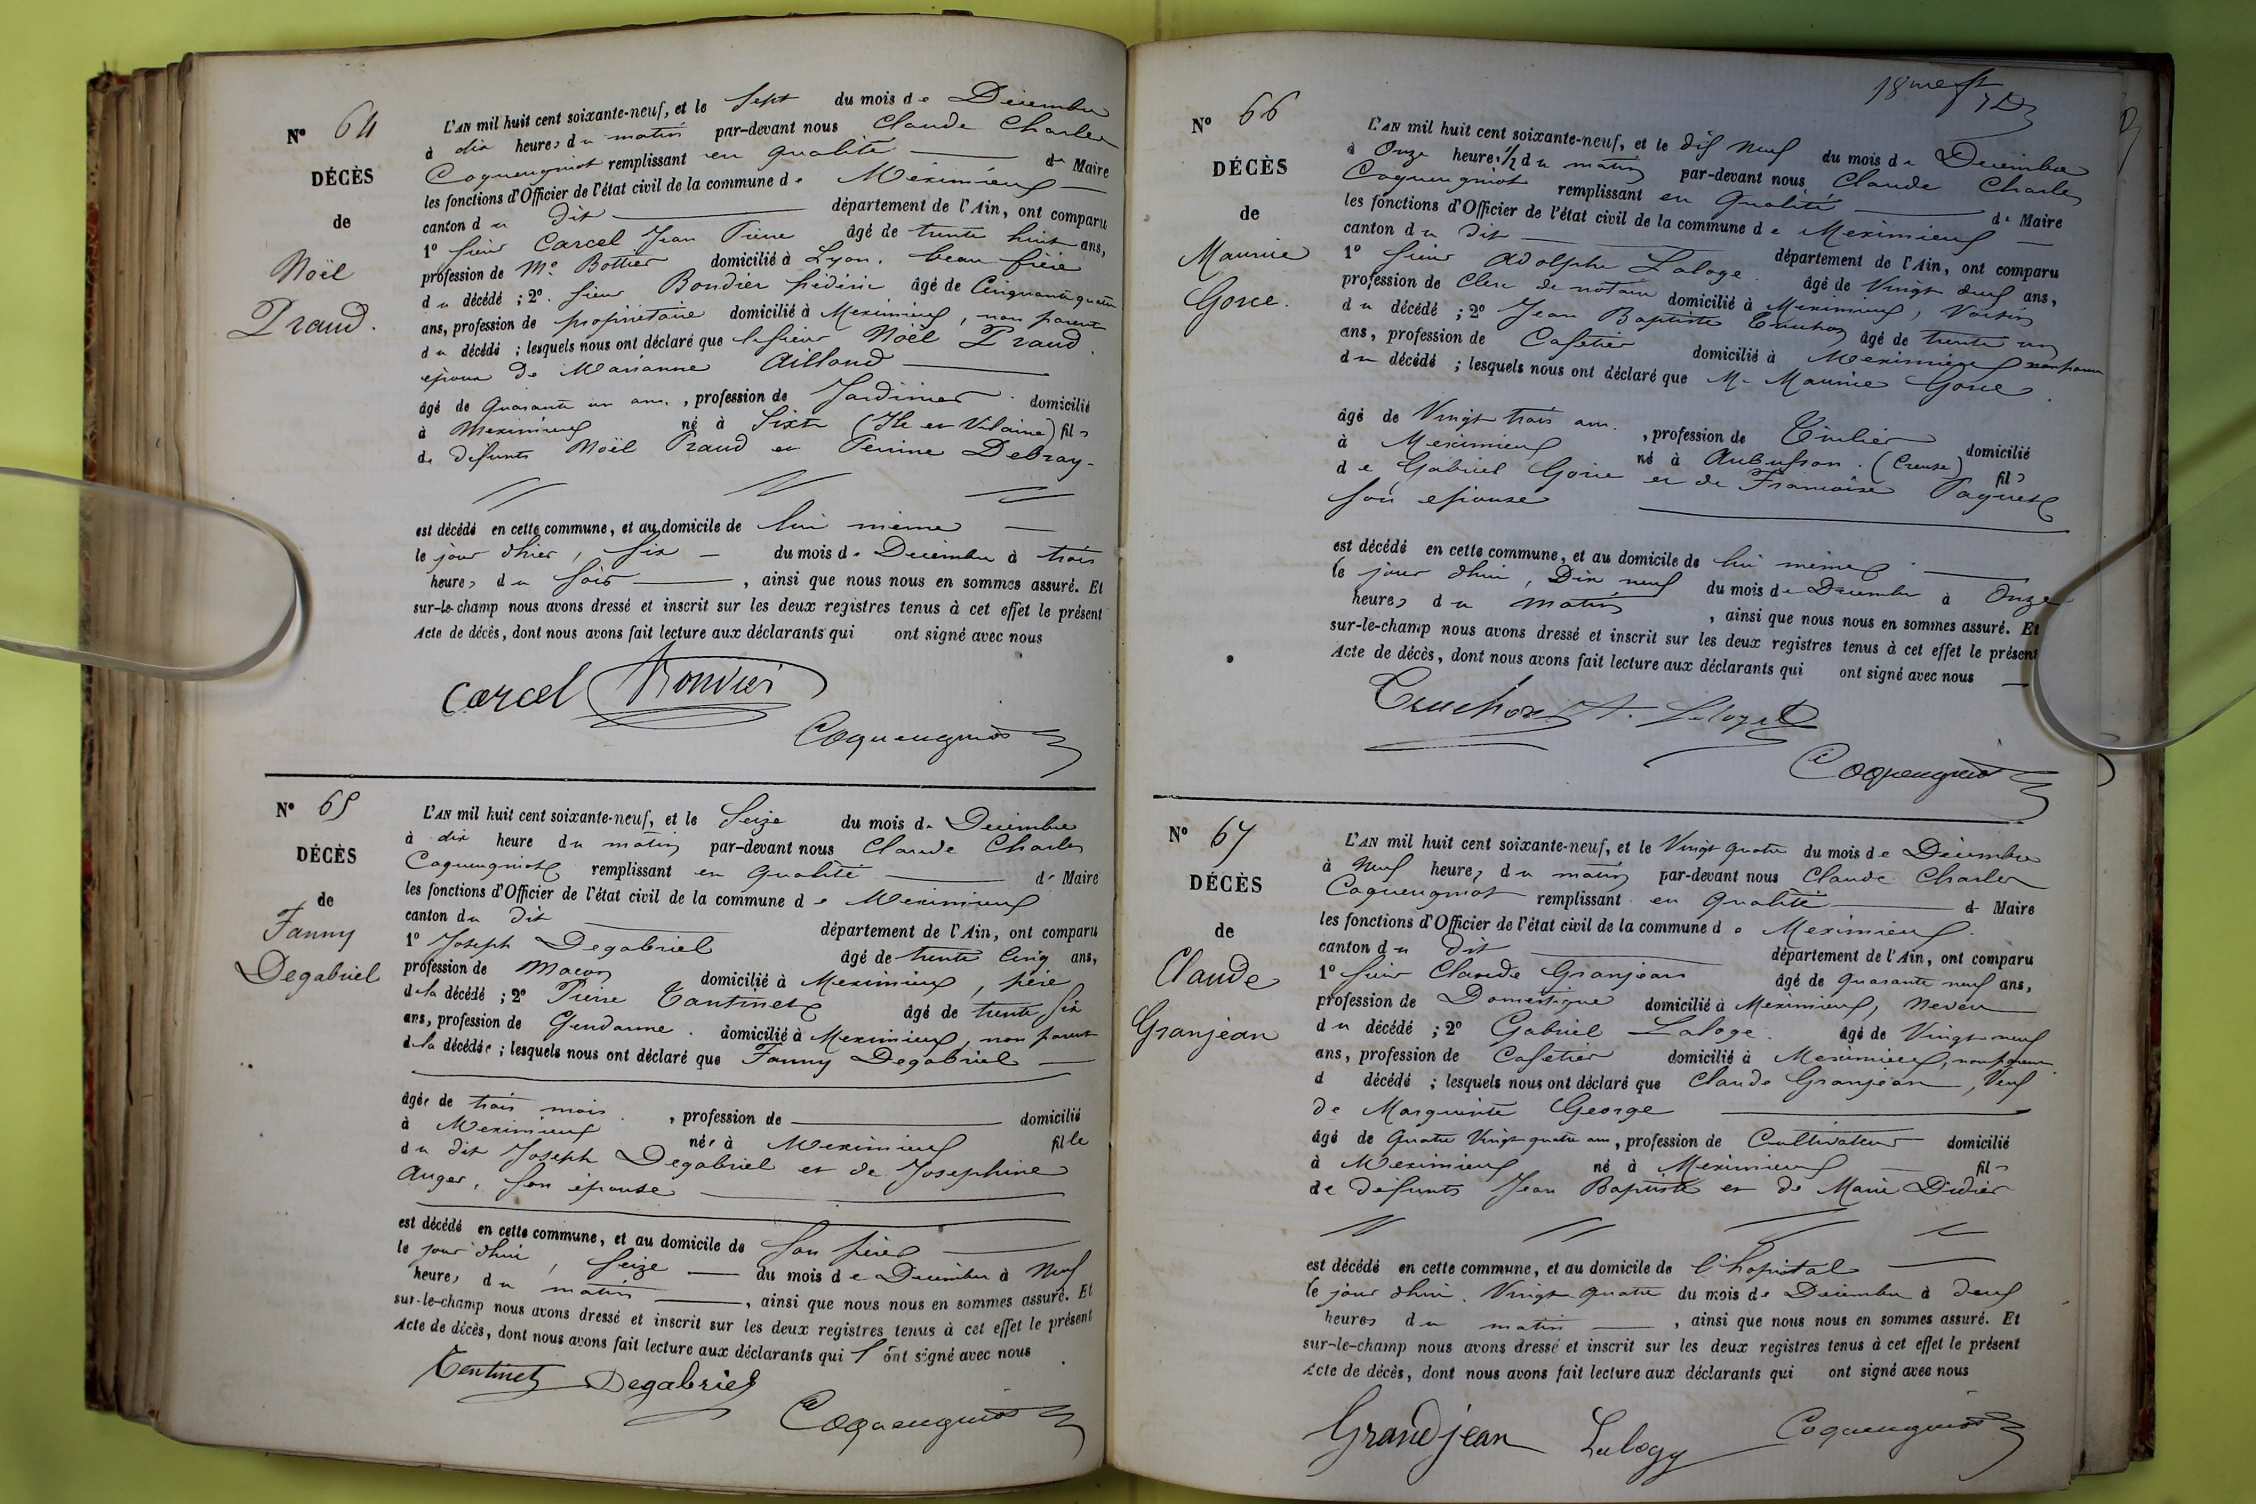 N° 64
DÉCÈS
de
Noël
Praud.
L'AN mil huit cent soixante-neuf, et le Sept du mois de Décembre
à dix heures du matin par-devant nous Claude Charles
Coquengniot remplissant en qualité de Maire
les fonctions d'Officier de l'état civil de la commune de Meximieux
canton du dit département de l'Ain, ont comparu
1° sieur Carcel Jean Pierre âgé de trente huit ans,
profession de Me Bottier domicilié à Lyon, beau frère
du décédé ; 2° sieur Bondier frédéric âgé de Cinquante quatre
ans, profession de propriétaire domicilié à Meximieux, non parent
du décédé ; lesquels nous ont déclaré que le sieur Noël Praud
époux de Marianne Aillaud
âgé de Quarante un ans, profession de Jardinier domicilié
à Meximieux né à Sixte (Ile et Vilaine) fils
de défunts Noël Praud et Perrine Debray-
est décédé en cette commune, et au domicile de lui même
le jour d'hier, six du mois de Décembre à trois
heures du soir, ainsi que nous nous en sommes assuré. Et
sur-le-champ nous avons dressé et inscrit sur les deux registres tenus à cet effet le présent
Acte de décès, dont nous avons fait lecture aux déclarants qui ont signé avec nous
Carcel Bondier
Coquengniot
N° 65
DÉCÈS
de
Fanny
Degabriel
L'AN mil huit cent soixante-neuf, et le Seize du mois de Décembre
à dix heure du matin par-devant nous Claude Charles
Coquengniot remplissant en qualité de Maire
les fonctions d'Officier de l'état civil de la commune de Meximieux
canton du dit département de l'Ain, ont comparu
1° Joseph Degabriel âgé de trente Cinq ans,
profession de Maçon domicilié à Meximieux, père
de la décédé ; 2° Pierre Tantinet âgé de trente six
ans, profession de Gendarme. domicilié à Meximieux, non parent
de la décédée ; lesquels nous ont déclaré que Fanny Degabriel
âgée de trois mois, profession de domicilié
à Meximieux née à Meximieux fille
du dit Joseph Degabriel et de Josephine
Auger, son épouse
est décédé en cette commune, et au domicile de son père
le jour d'hui, Seize du mois de Décembre à Neuf
heures du matin, ainsi que nous nous en sommes assuré. Et
sur-le-champ nous avons dressé et inscrit sur les deux registres tenus à cet effet le présent
Acte de décès, dont nous avons fait lecture aux déclarants qui ont signé avec nous
Tentinet Degabriel
Coquengniot
N° 66
DÉCÈS
de
Maurice
Gorce.
L'AN mil huit cent soixante-neuf, et le dix Neuf du mois de Décembre
à Onze heures 1/2 du matin par-devant nous Claude Charles
Coquengniot remplissant en Qualité de Maire
les fonctions d'Officier de l'état civil de la commune de Meximieux
canton du dit département de l'Ain, ont comparu
1° sieur Adolphe Laloge âgé de Vingt deux ans,
profession de Clerc de notaire domicilié à Meximieux, Voisin
du décédé ; 2° Jean Baptiste Truchon âgé de trente un
ans, profession de Cafetier domicilié à Meximieux non parent
du décédé ; lesquels nous ont déclaré que Mr Maurice Gorce
âgé de Vingt trois ans, profession de Tuilier domicilié
à Meximieux né à Aubusson. (Creuse) fils
de Gabriel Gorce et de Francoise Paquet
son epouse
est décédé en cette commune, et au domicile de lui même
le jour d'hui, Dix neuf du mois de Décembre à Onze
heures du matin, ainsi que nous nous en sommes assuré. Et
sur-le-champ nous avons dressé et inscrit sur les deux registres tenus à cet effet le présent
Acte de décès, dont nous avons fait lecture aux déclarants qui ont signé avec nous
Truchon A. Laloge
Coquengniot
N° 67
DÉCÈS
de
Claude
Granjean
L'AN mil huit cent soixante-neuf, et le Vingt quatre du mois de Décembre
à Neuf heures du matin par-devant nous Claude Charles
Coquengniot remplissant en Qualité de Maire
les fonctions d'Officier de l'état civil de la commune de Meximieux.
canton du dit département de l'Ain, ont comparu
1° sieur Claude Granjean âgé de Quarante neuf ans,
profession de Domestique domicilié à Meximieux, Neveu
du décédé ; 2° Gabriel Laloge. âgé de Vingt neuf
ans, profession de Cafetier domicilié à Meximieux, non parent
d décédé ; lesquels nous ont déclaré que Claude Granjean, Veuf
de Marguerite George
âgé de Quatre Vingt quatre ans, profession de Cultivateur domicilié
à Meximieux né à Meximieux fils
de défunts Jean Baptiste et de Marie Didier
est décédé en cette commune, et au domicile de l'hopital
le jour d'hui. Vingt quatre du mois de Décembre à deux
heures du matin, ainsi que nous nous en sommes assuré. Et
sur-le-champ nous avons dressé et inscrit sur les deux registres tenus à cet effet le présent
Acte de décès, dont nous avons fait lecture aux déclarants qui ont signé avec nous
Grandjean Laloge Coquengniot